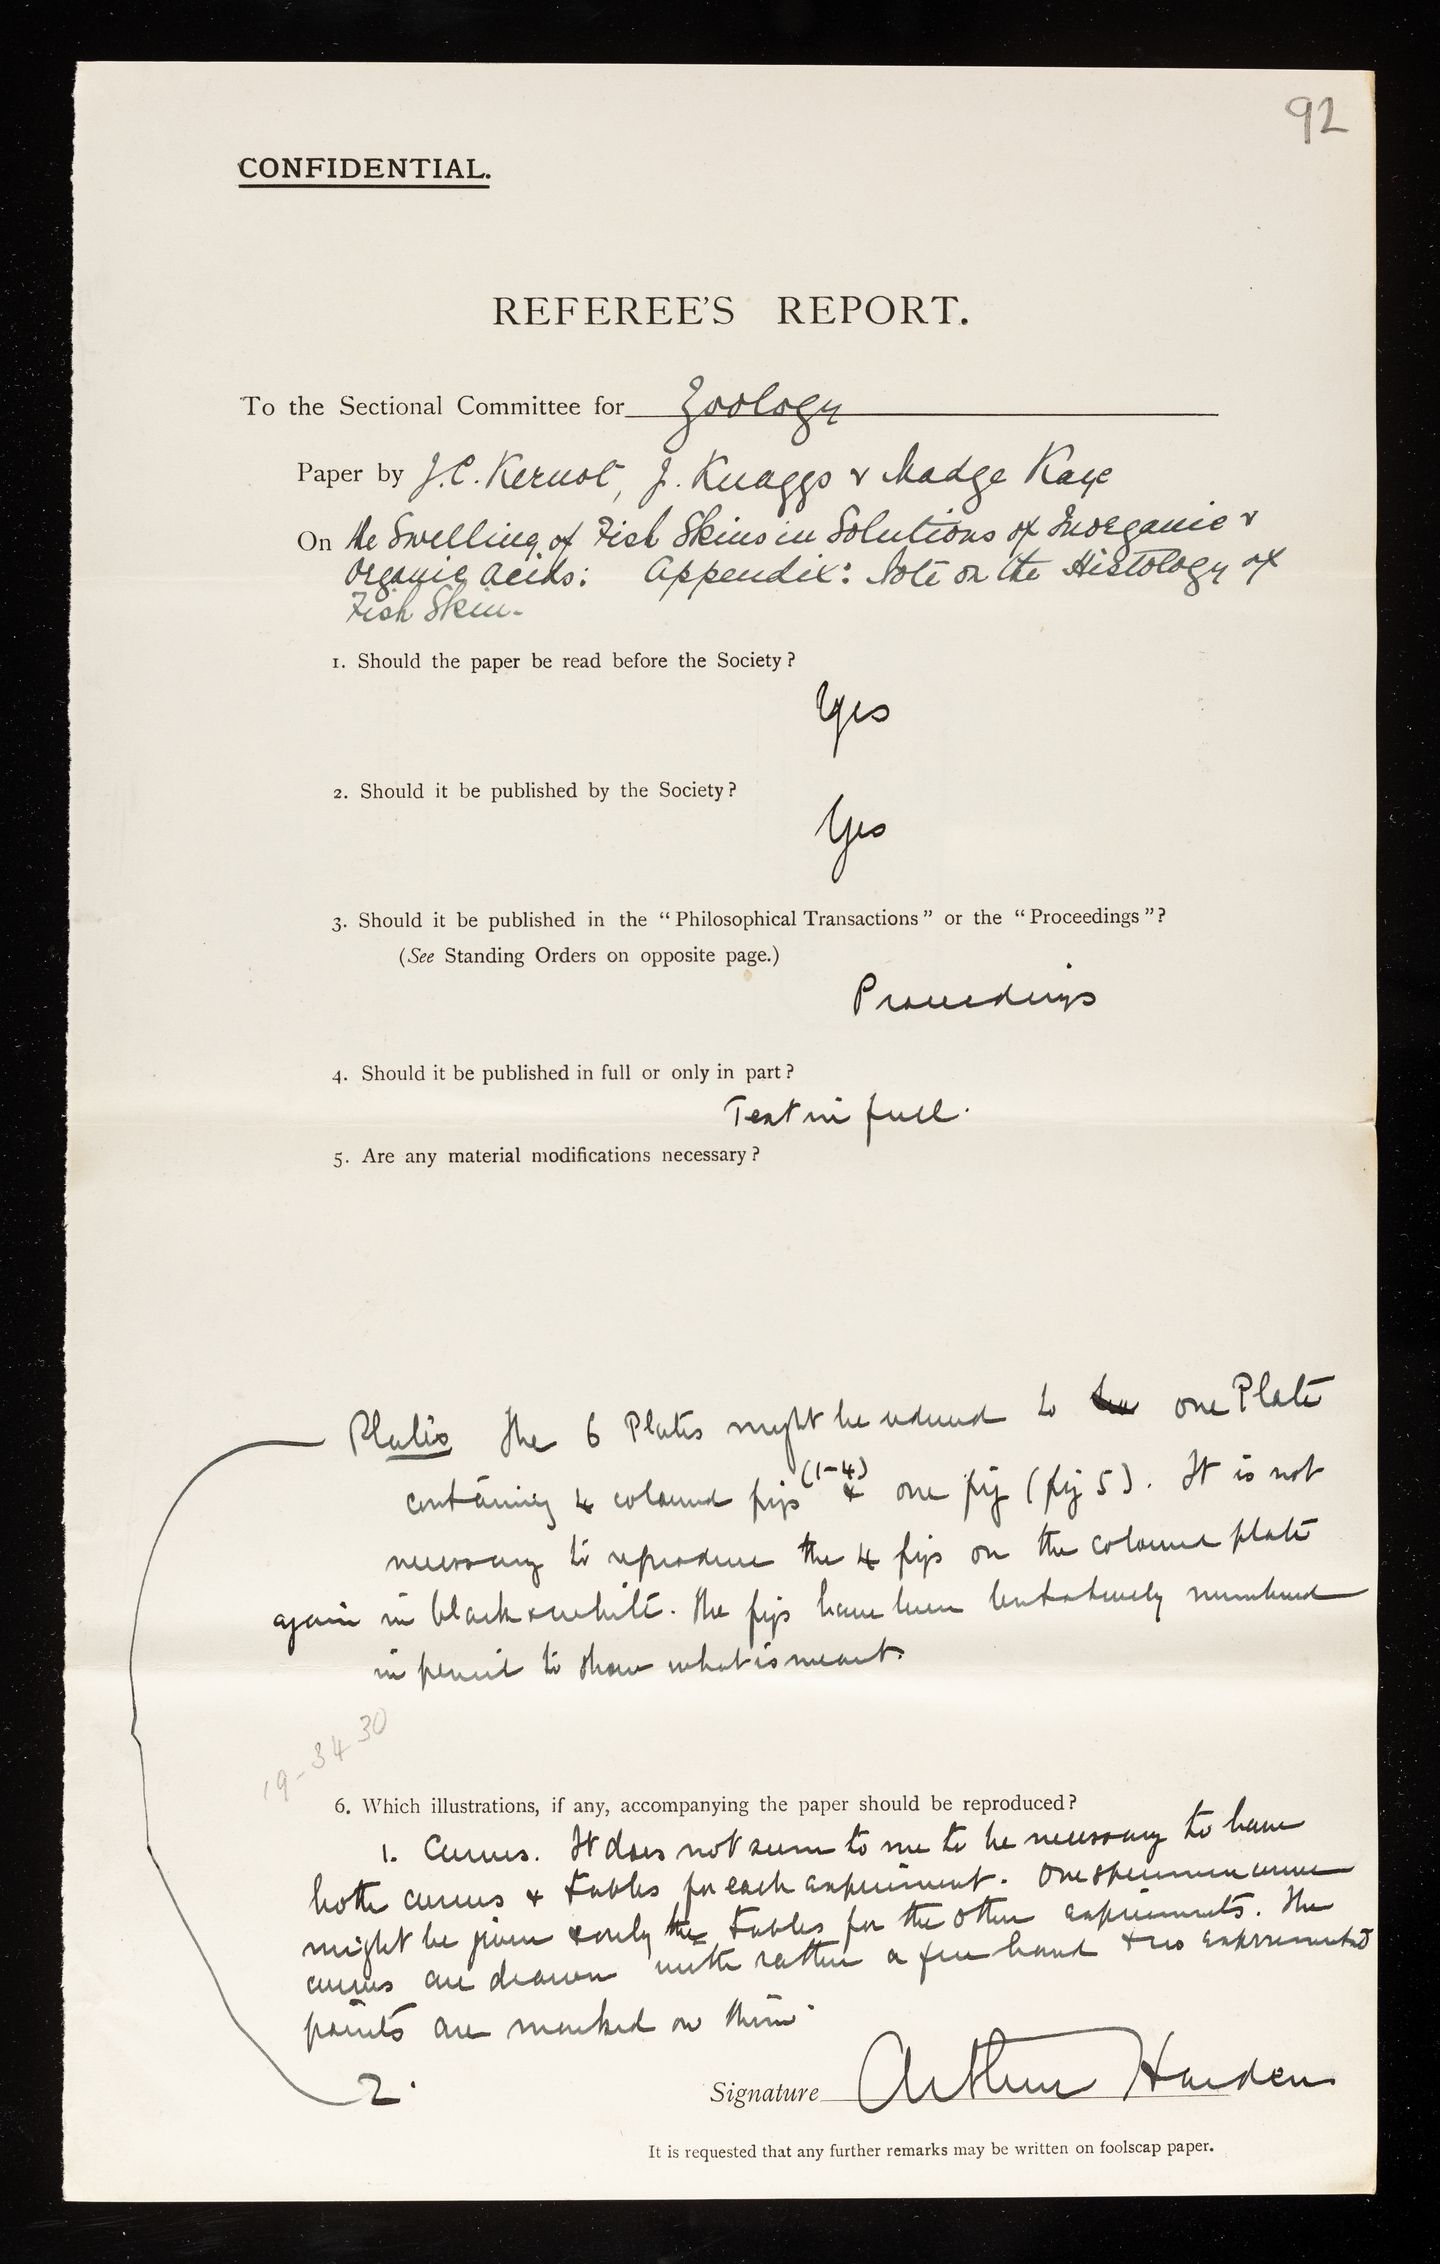 92
CONFIDENTIAL.
REFEREE'S REPORT.
To the Sectional Committee for Zoology
Paper by J. C. Kernot, J. Knaggs & Madge Kaye
On the Swelling of Fish Skins in Solutions of Inorganic &
Organic Acids: Appendix: Note on the Histology of
Fish Skin.
1. Should the paper be read before the Society?
Yes
2. Should it be published by the Society?
Yes
3. Should it be published in the "Philosophical Transactions" or the "Proceedings"?
(See Standing Orders on opposite page.)
Proceedings
4. Should it be published in full or only in part?
Text in full.
5. Are any material modifications necessary?
Plates The 6 Plates might be reduced to one Plate
containing 4 coloured figs (1-4) & one fig (fig 5). It is not
necessary to reproduce the 4 figs on the coloured plate
again in black & white. The figs have been tentatively numbered
in pencil to show what is meant.
19-34 30
6. Which illustrations, if any, accompanying the paper should be reproduced?
1. Curves. It does not seem to me to be necessary to have
both curves & tables for each experiment. One specimen curve
might be given & only the tables for the other experiments. The
curves are drawn with rather a free hand & no experimental
points are marked on them.
2.
Signature Arthur Harden
It is requested that any further remarks may be written on foolscap paper.